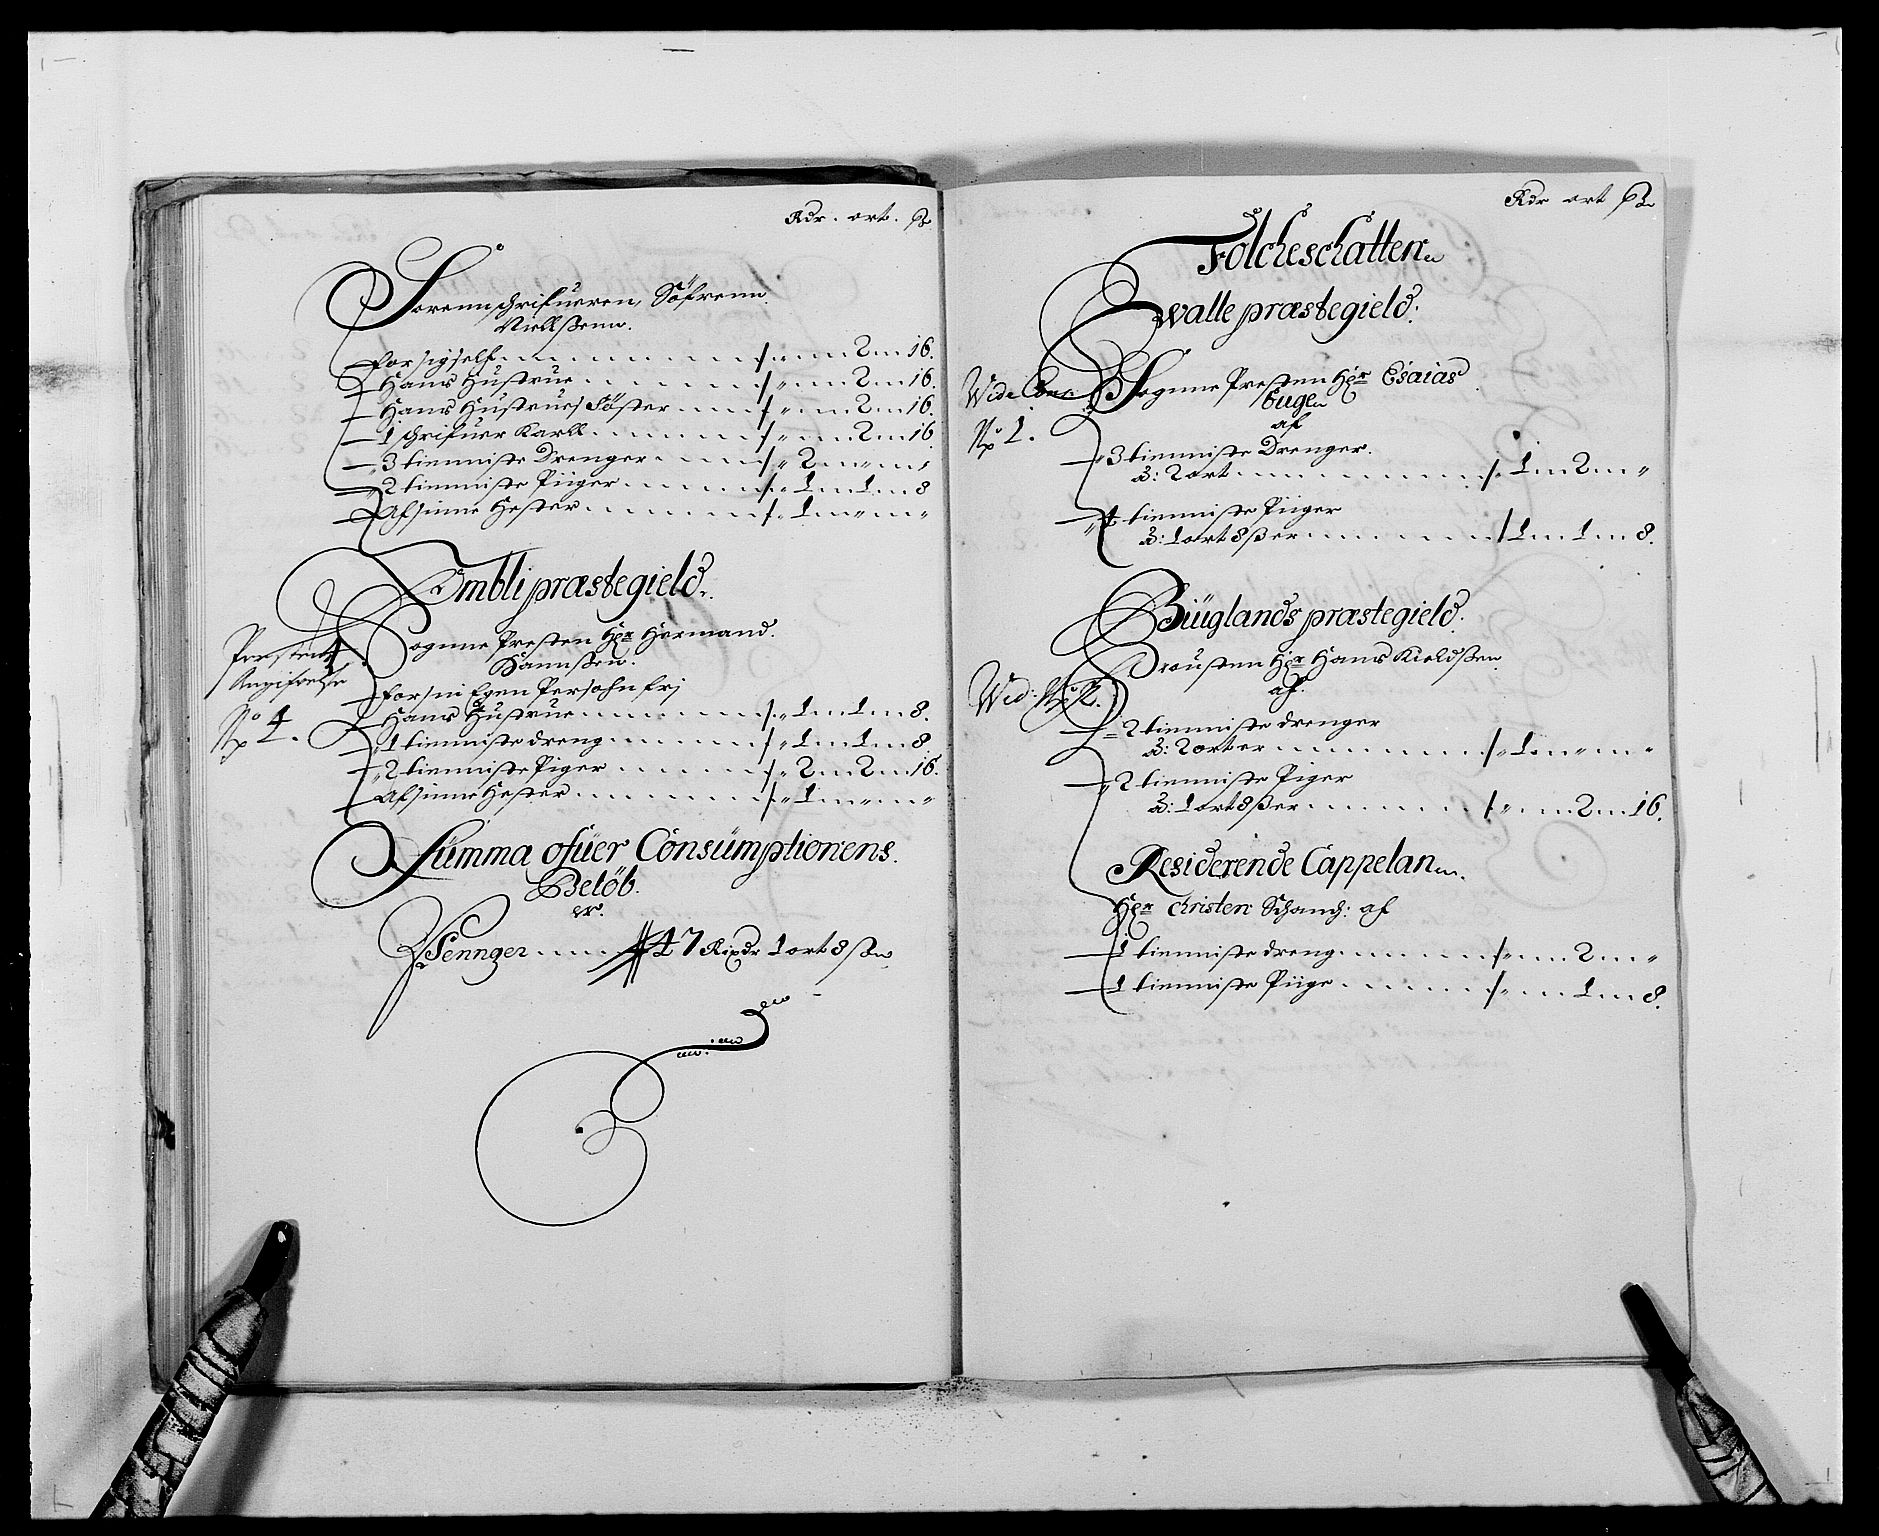 Rdr. ort. ß
Sorennschrifueren, Söfrenn
Niellßenn.
for sigself - 2 - 16.
Hans Hustrue - 2 - 16.
Hans Hustrues Söster - 2 - 16.
1 schrifuer Karll - 2 - 16
3 tienniste Drenger - 2 - -
2 tienniste Piiger - 1 - 1 - 8
Af sinne Hester - 1 - -
Ombli præstegield.
Sognne Presten Hr Hermand
Hannßen.
Prestens
Angifvelse
No 4
for sin Egen Persohn frj
Hans Hustrue - 1 - 1 - 8.
1 tienniste dreng - 1 - 1 - 8.
2 tienniste Piger - 2 - 2 - 16.
Af sinne Hester - 1 - -
Summa ofuer Consumptionens
Belöb
er.
Pennger - 47 Rixdr 1 ort 8 ß
Rdr ort ß
Folcheschatten
Walle præstegield.
Wide Cons.
No 1.
Sognne Presten Hr Esaias
Bugen
af
3 tienniste Drenger.
à: 2 ort - 1 - 2 - -
4 tienniste Piiger
à: 1 ort 8 ßer - 1 - 1 - 8.
Büglands præstegield.
Wid: No 2.
Prousten Hr Hans Kieldßen
af.
2 tienniste drenger
à: 2 orter - 1 - -
2 tienniste Piger
à: 1 ort 8 ßer - 2 - 16.
Residerende Cappelan
Hr Christen Schanch: af
1 tienniste dreng - 2 - -
1 tienniste Piige - 1 - 8.